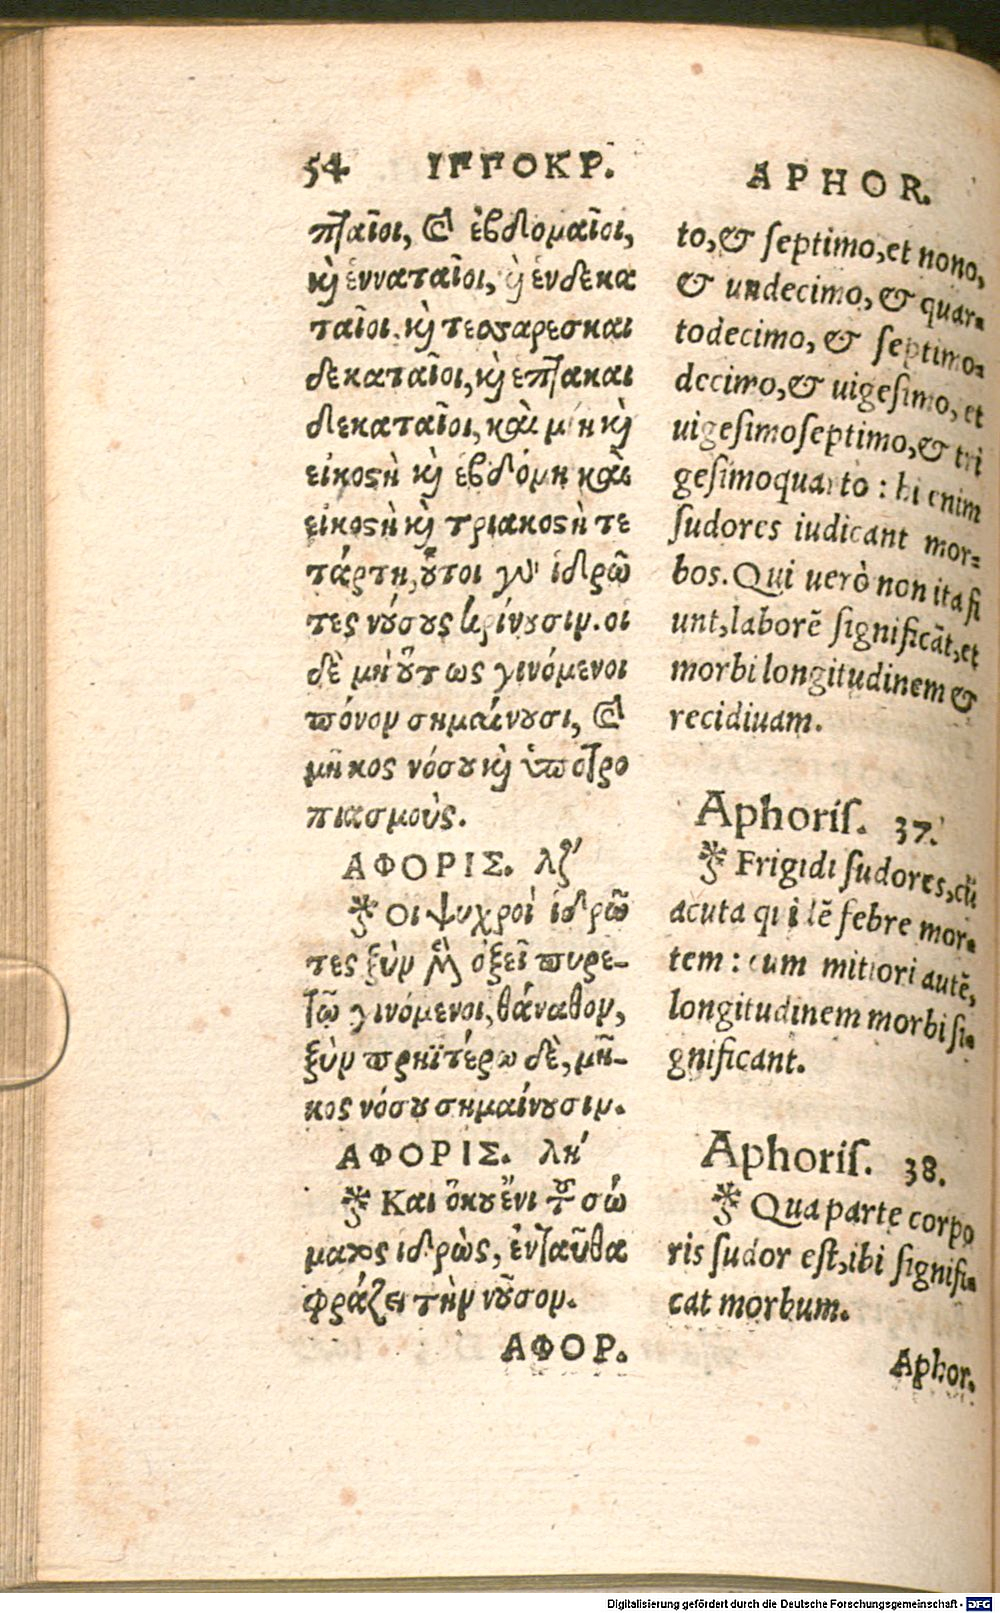 54 ΙΠΠΟΚΡ.
πταῖοι, καὶ ἑβδομαῖοι,
καὶ ἐνναταῖοι, καὶ ἑνδεκα
ταῖοι, καὶ τεσσαρεσκαι
δεκαταῖοι, καὶ ἑπτακαι
δεκαταῖοι, καὶ μιῆ καὶ
εἰκοστὴ καὶ ἑβδόμη καὶ
εἰκοστὴ καὶ τριακοστὴ τε
τάρτη, οὗτοι γὰρ ἱδρῶ
τες νούσους κρίνουσιν. οἱ
δὲ μὴ οὕτως γινόμενοι
πόνον σημαίνουσι, καὶ
μῆκος νόσου καὶ ὑποτρο
πιασμοὺς.
ΑΦΟΡΙΣ. λζ΄
Οἱ ψυχροὶ ἱδρῶ
τες ξὺν μὲν ὀξεῖ πυρε-
τῷ γινόμενοι, θάνατον,
ξὺν πρηϊτέρω δὲ, μῆ-
κος νόσου σημαίνουσιν.
ΑΦΟΡΙΣ. λη΄
Καὶ ὅκου ἔνι τοῦ σώ
ματος ἱδρὼς, ἐνταῦθα
φράζει τὴν νοῦσον.
ΑΦΟΡ.
APHOR.
to, & septimo, et nono,
& undecimo, & quar-
todecimo, & septimo-
decimo, & uigesimo, et
uigesimoseptimo, & tri
gesimoquarto : hi enim
sudores iudicant mor-
bos. Qui uerò non ita fi
unt, laborẽ significãt, et
morbi longitudinem &
recidiuam.
Aphoris. 37.
Frigidi sudores, cũ
acuta quidẽ febre mor-
tem : cum mitiori autẽ,
longitudinem morbi si-
gnificant.
Aphoris. 38.
Qua parte corpo
ris sudor est, ibi signifi-
cat morbum.
Aphor.
Digitalisierung gefördert durch die Deutsche Forschungsgemeinschaft - DFG